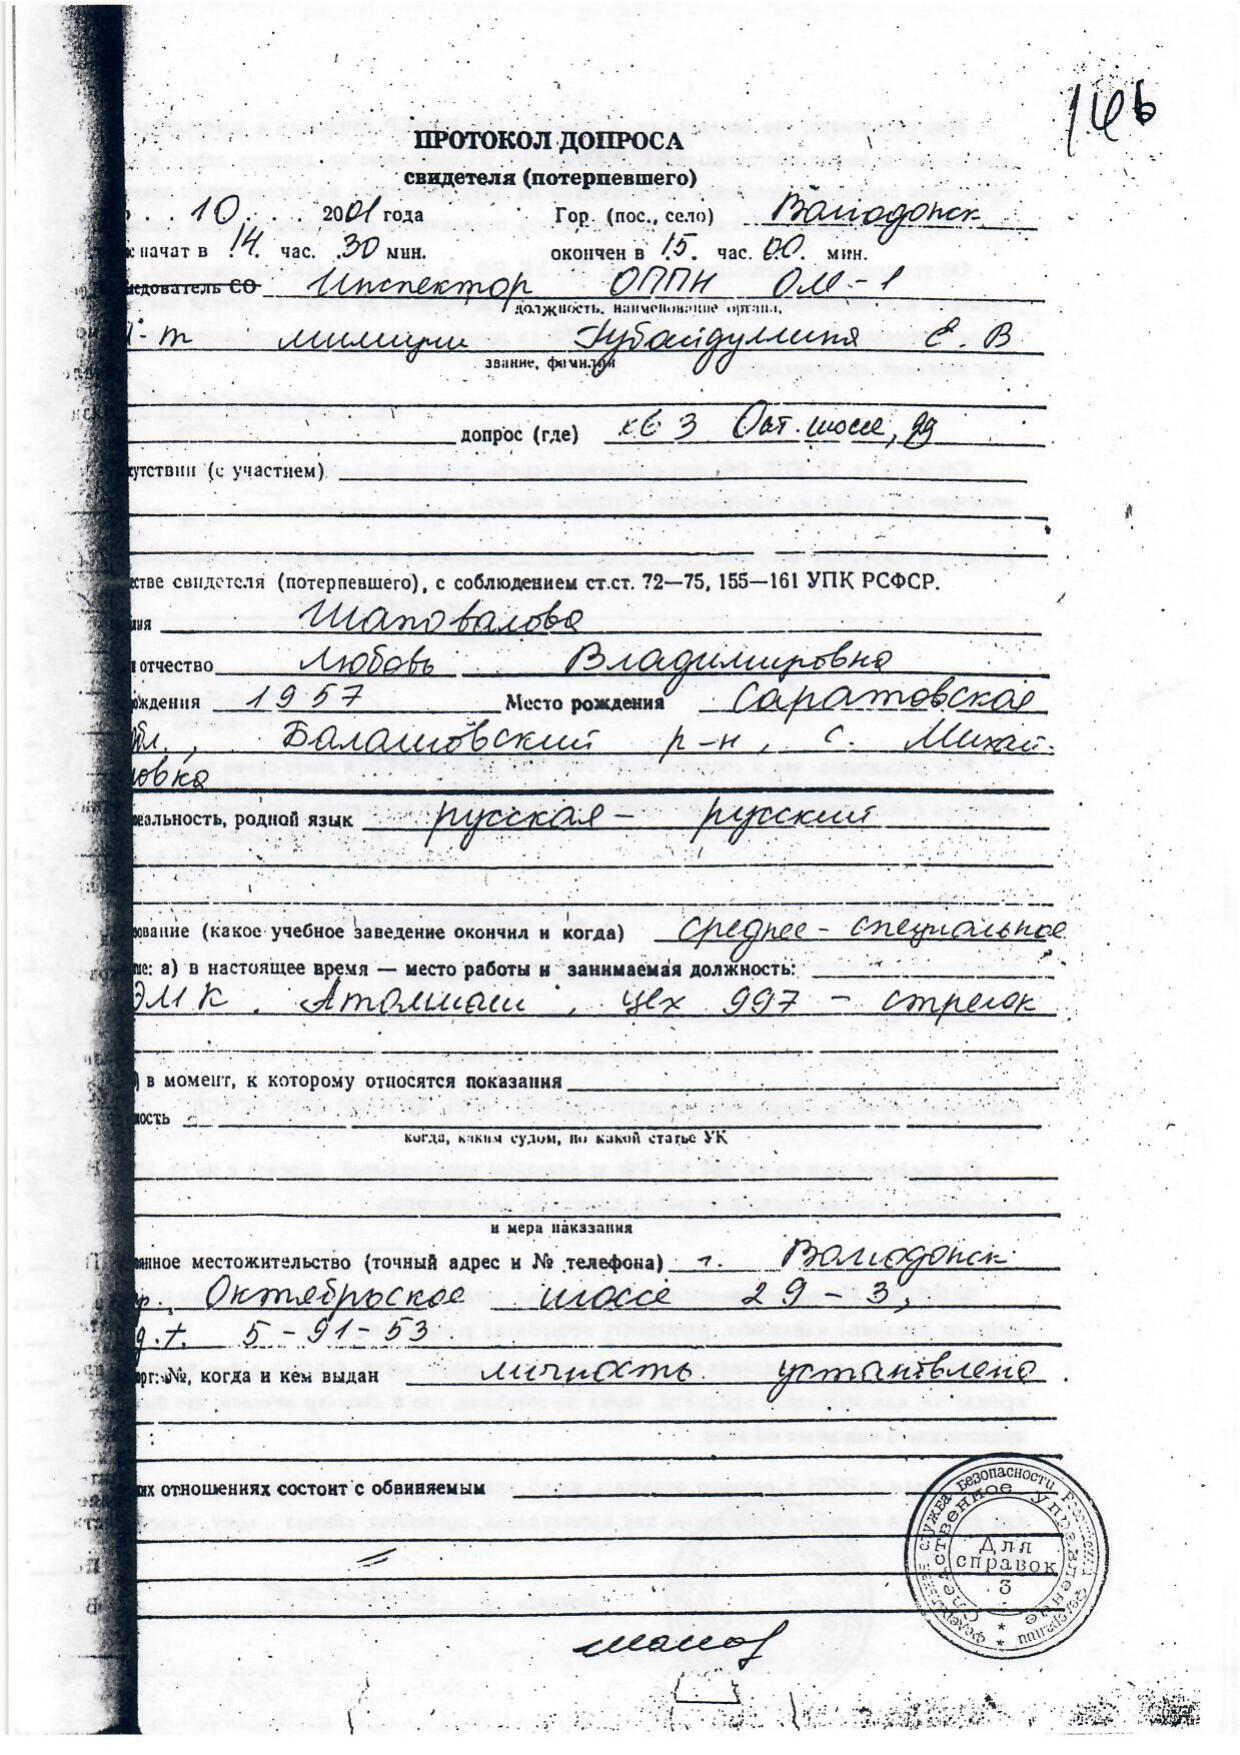 146
ПРОТОКОЛ ДОПРОСА
свидетеля (потерпевшего)
10 2001 года Гор. (пос., село) Волгодонск
начат в 14 час. 30 мин. окончен в 15 час. 00 мин.
едователь СО Инспектор ОППН ОМ-1
должность, наименование органа,
л-т милиции Губайдуллина Е. В
звание, фамилия
допрос (где) кв 3 Окт. шоссе, 29
утствии (с участием)
стве свидетеля (потерпевшего), с соблюдением ст.ст. 72—75, 155—161 УПК РСФСР.
Шаповалова
отчество Любовь Владимировна
ождения 1957 Место рождения Саратовская
обл., Балашовский р-н, с. Михай-
ловка
альность, родной язык русская - русский
ование (какое учебное заведение окончил и когда) среднее-специальное
а) в настоящее время — место работы и занимаемая должность:
ЭМК Атоммаш, цех 997 - стрелок
в момент, к которому относятся показания
ность
когда, каким судом, по какой статье УК
и мера наказания
нное местожительство (точный адрес и № телефона) г. Волгодонск
Октябрьское шоссе 29-3,
д.т. 5-91-53
№, когда и кем выдан личность установлена
ких отношениях состоит с обвиняемым
Федеральная служба безопасности Российской Федерации
Следственное управление
Для
справок
3